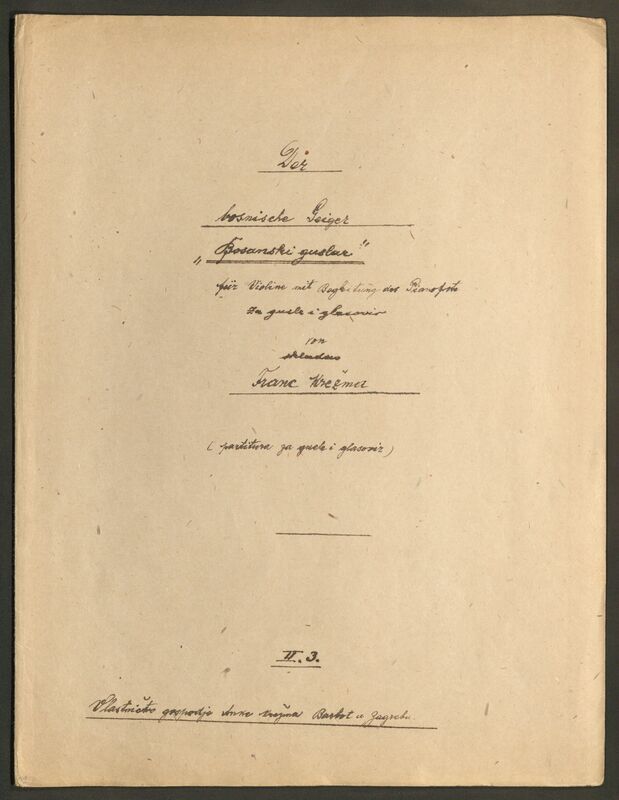 Der
bosnische Geiger
„Bosanski guslar"
für Violine mit Begleitung des Pianoforte
za gusle i glasovir
von
skladao
Franc Krežmer
(partitura za gusle i glasovir)
II. 3.
Vlastničtvo gospodje Anke Krežma Barbot u Zagrebu.